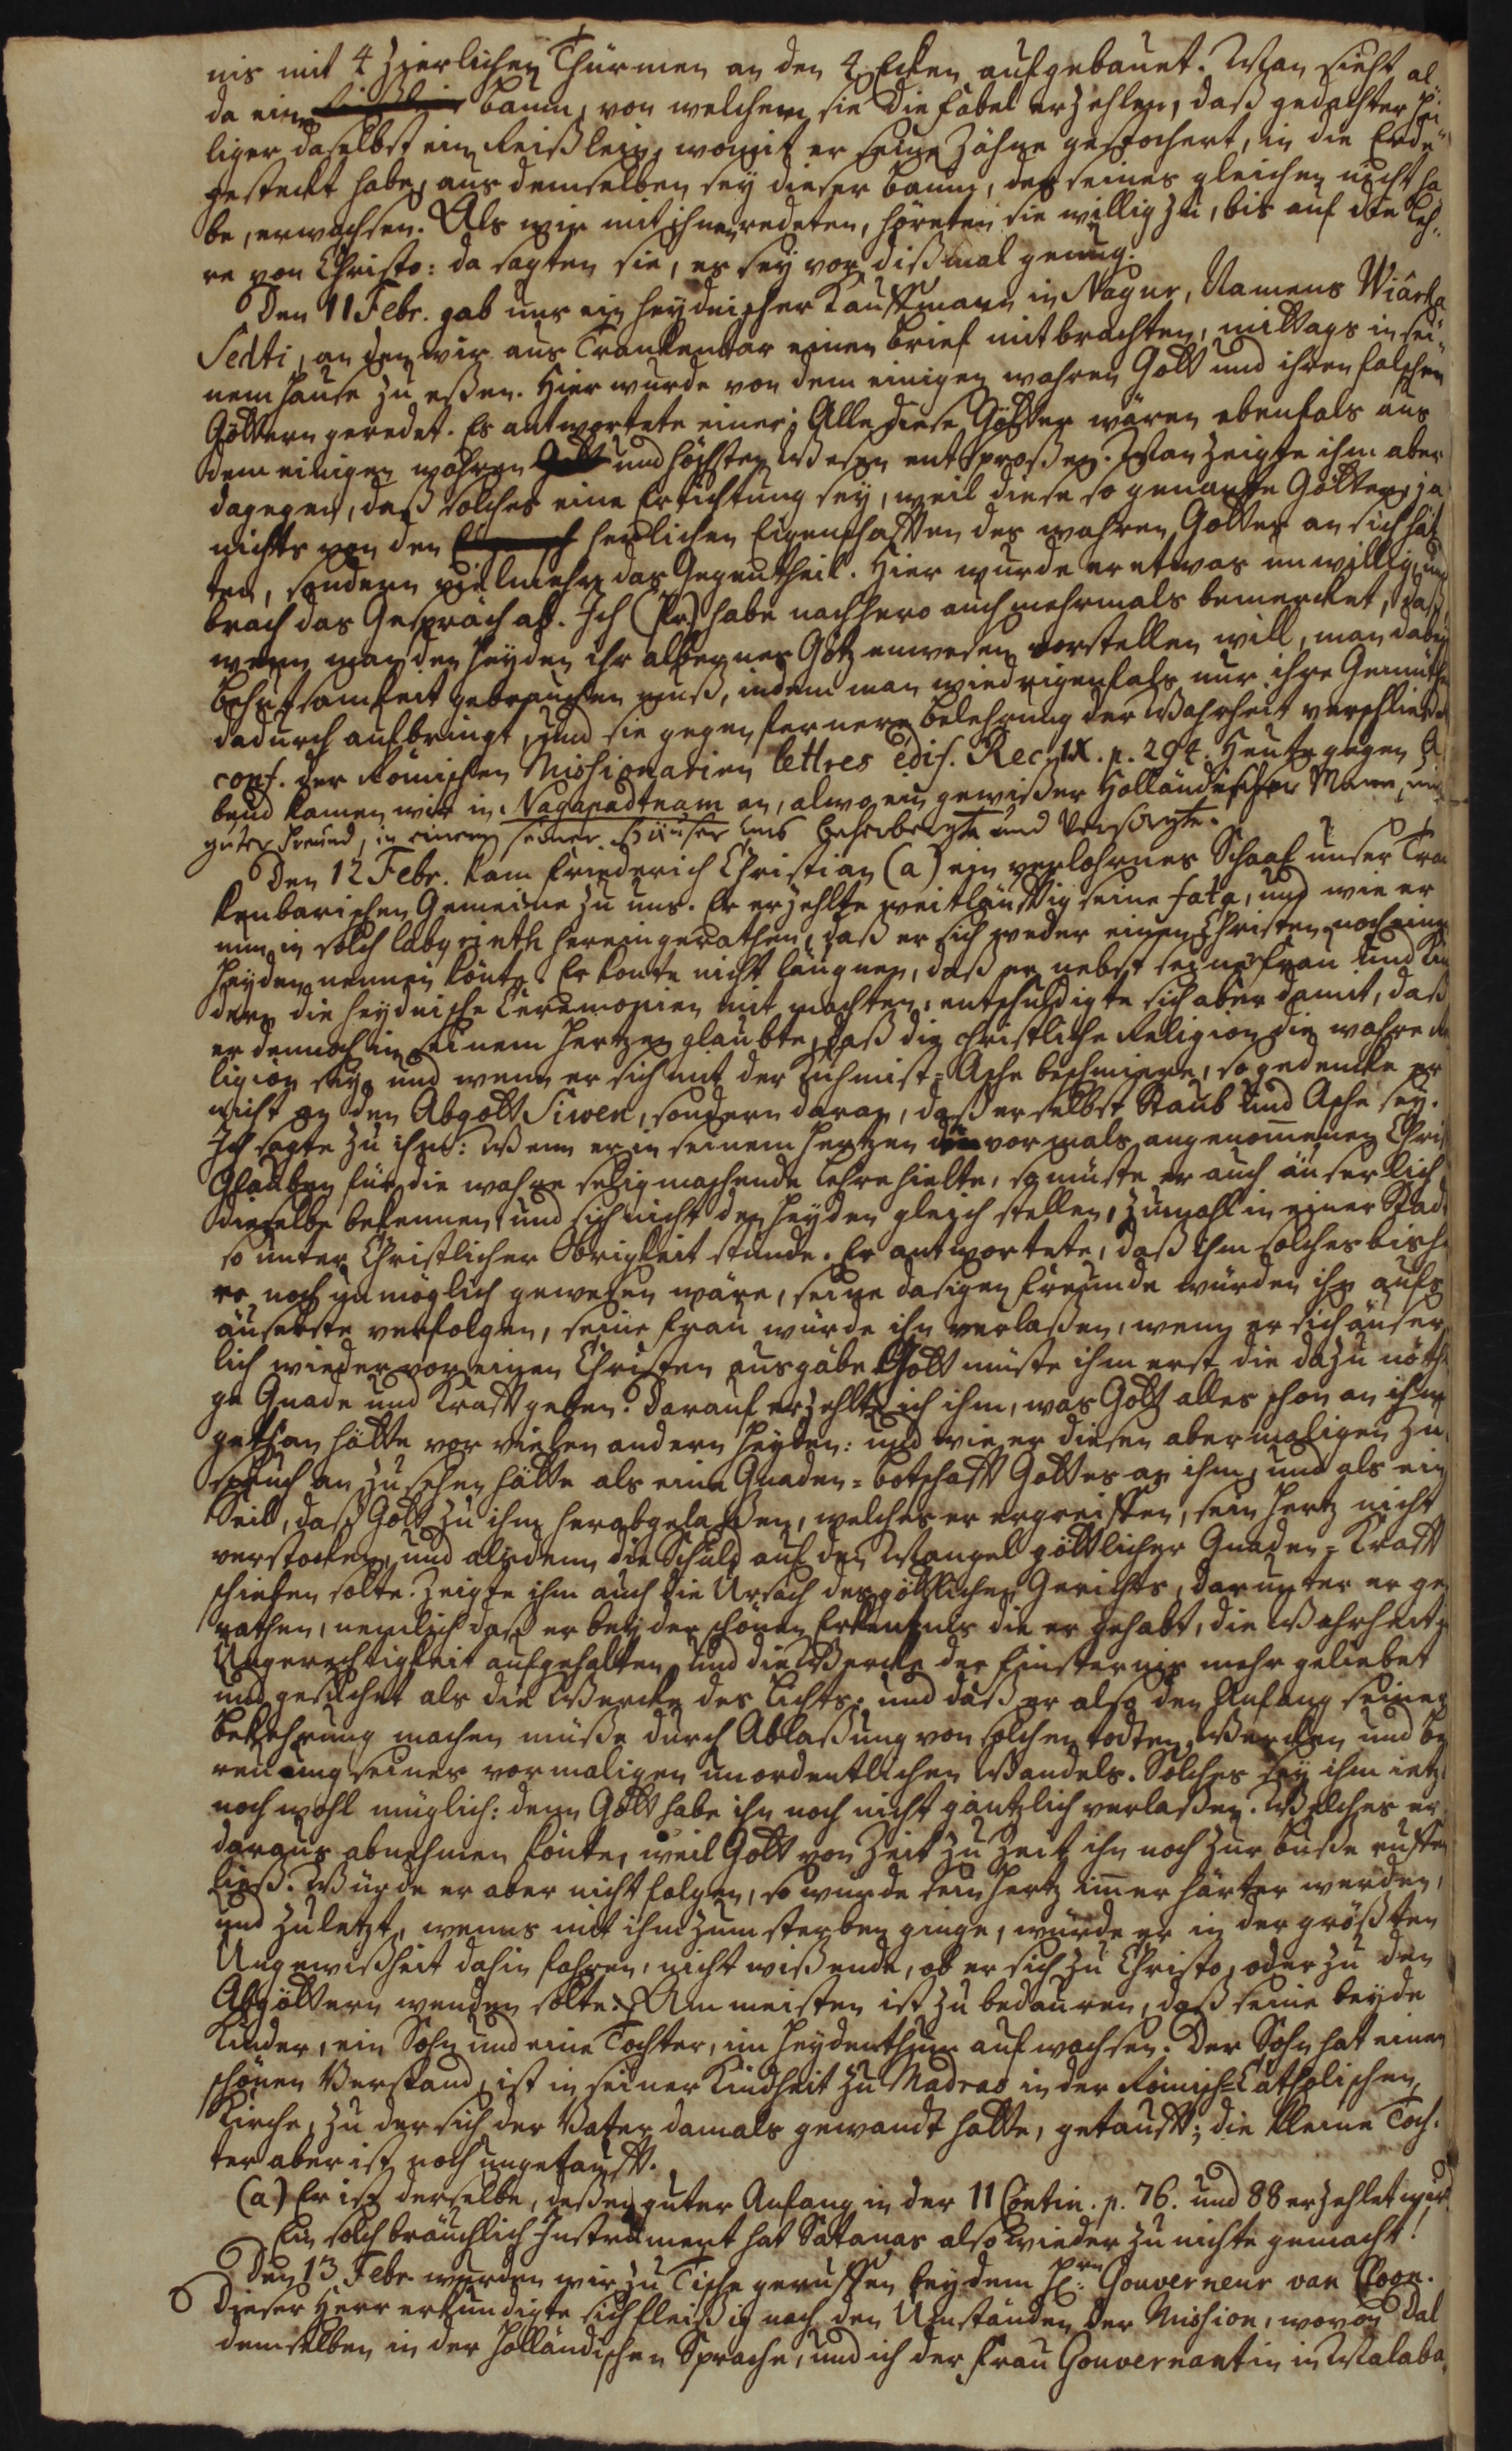 nis mit 4 zierlichen Thürmen an den 4 Ecken aufgebauet. Man sieht al
da einen baum, von welchem sie die fabel erzehlen, daß gedachter Hei¬
liger daselbst ein Reißlein, womit er seine Zähne gestochert, in die Erde
gesteckt habe, aus demselben sey dieser baum, der seines gleichen nicht ha
be, erwachsen. Als wir mit ihnen redeten, höreten sie willig zu, bis auf die Leh¬
re von Christo: da sagten sie, es sey vor dißmal genug.
Den 11 Febr. gab uns ein heydnischer Kauffmann in Nagur, Namens Wiârka
Sedti, an den wir aus Trankenbar einen brief mitbrachten, mittags in sei¬
nem Hause zu eßen. Hier wurde von dem einigen wahren Gott und ihren falschen
Göttern geredet. Es antwortete einer: Alle diese Götter wären ebenfals aus
dem einigen wahren Gott und höchsten Wesen entsproßen. Man zeigte ihm aber
dagegen, daß solches eine Ertichtung sey, weil diese so genante Götter ja
nichts von den herlichen Eigenschafften des wahren Gottes an sich hät
ten, sondern vielmehr das Gegentheil. Hier wurde er etwas unwillig, und
brach das Gespräch ab. Ich (Pr.) habe nachhero auch mehrmals bemercket, daß
wenn man den Heyden ihr albernes Götzenwesen vorstellen will, man dabey
behutsamkeit gebrauchen muß, indem man wiedrigenfals nur ihre Gemüther
dadurch aufbringt, und sie gegen fernere belehrung der Wahrheit verschließet
conf. der Römischen Missionarien lettres edif. Rec. IX. p. 294. Heute gegen A
bend kamen wir in Nagapadtnam an, alwo ein gewißer Holländischer Mann, ein
guter Freund, in einem seiner Häuser uns beherbergte und versorgte.
Den 12 Febr. kam Friederich Christian (a) ein verlohrnes Schaaf unser Tran
kenbarischen Gemeine zu uns. Er erzehlte weitläufftig seine fata, und wie er
nun in solch labyrinth hereingerathen, daß er sich weder einen Christen noch einen
Heyden nennen könte. Er konte nicht läugnen, daß er nebst seiner Frau und Kin
dern die heydnische Ceremonien mit machten: entschuldigte sich aber damit, daß
er dennoch in seinem Hertzen glaubte, daß die christliche Religion die wahre Re
ligion sey, und wenn er sich mit der Kühmist-Asche beschmiere, so gedencke er
nicht an den Abgott Siwen, sondern daran, daß er selbst Staub und Asche sey.
Ich sagte zu ihm: Wenn er in seinem Hertzen den vormals angenom̄enen Christ
Glauben für die wahre seligmachende Lehre hielte, so müste er auch äuserlich
dieselbe bekennen und sich nicht den Heyden gleich stellen, zumahl in einer Stadt
so unter Christlicher Obrigkeit stünde. Er antwortete, daß ihm solches bishe
ro noch unmöglich gewesen wäre, seine dasigen Freunde würden ihn aufs
äuserste verfolgen, seine Frau würde ihn verlaßen, wenn er sich äuser
lich wieder vor einen Christen ausgäbe. Gott müste ihm erst die dazu nöthi
ge Gnade und Krafft geben. Darauf erzehlte ich ihm, was Gott alles schon an ihm
gethan hätte vor vielen andern Heyden: und wie er diesen abermaligen Zu
spruch anzusehen hätte als eine Gnaden-botschafft Gottes an ihm, und als ein
Seil, daß Gott zu ihm herabgelaßen, welches er ergreiffen, sein Hertz nicht
verstocken, und alsdenn die Schuld auf den Mangel göttlicher Gnaden-Krafft
schieben solte. Zeigte ihm auch die Ursach des göttlichen Gerichts, darunter er ge
rathen, nemlich daß er bey der schönen Erkentnis die er gehabt, die Wahrheit in
Ungerechtigkeit aufgehalten, und die Wercke der Finsternis mehr geliebet
und gesuchet als die Wercke des Lichts: und daß er also den Anfang seiner
bekehrung machen müße durch Ablaßung von solchen todten Wercken und be
reuung seines vormaligen unordentlichen Wandels. Solches sey ihm ietzt
noch wohl müglich: denn Gott habe ihn noch nicht gäntzlich verlaßen. Welches er
daraus abnehmen könte, weil Gott von Zeit zu Zeit ihn noch zur buße ruffen
ließ. Würde er aber nicht folgen, so würde sein Hertz im̄er härter werden,
und zuletzt, wenns mit ihm zum sterben ginge, würde er in der größten
Ungewißheit dahin fahren, nicht wißende, ob er sich zu Christo, oder zu den
Abgöttern wenden solte. Am meisten ist zu bedauren, daß seine beyde
Kinder, ein Sohn und eine Tochter, im Heydenthum aufwachsen. Der Sohn hat einen
schönen Verstand, ist in seiner Kindheit zu Madras in der Römisch-Catholischen
Kirche, zu der sich der Vater damals gewandt hatte, getaufft; die kleine Toch¬
ter aber ist noch ungetaufft.
(a) Er ist derselbe, deßen guter Anfang in der 11 Contin. p. 76. und 88 erzehlet wird
Ein solch bräuchlich Instrument hat Satanas also wieder zu nichte gemacht!
Den 13 Febr. wurden wir zu Tische geruffen bey dem Hrn. Gouverneur van Cloon.
Dieser Herr erkundigte sich fleißig nach den Umständen der Mission, wovon Dal
demselben in der Holländischen Sprache, und ich der Frau Gouvernantin in Malaba